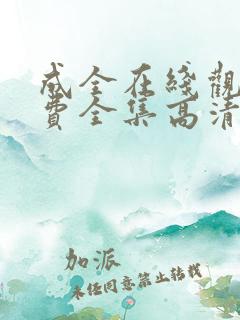 成全在线觀
費全集高清
加派
未经同意禁止转载